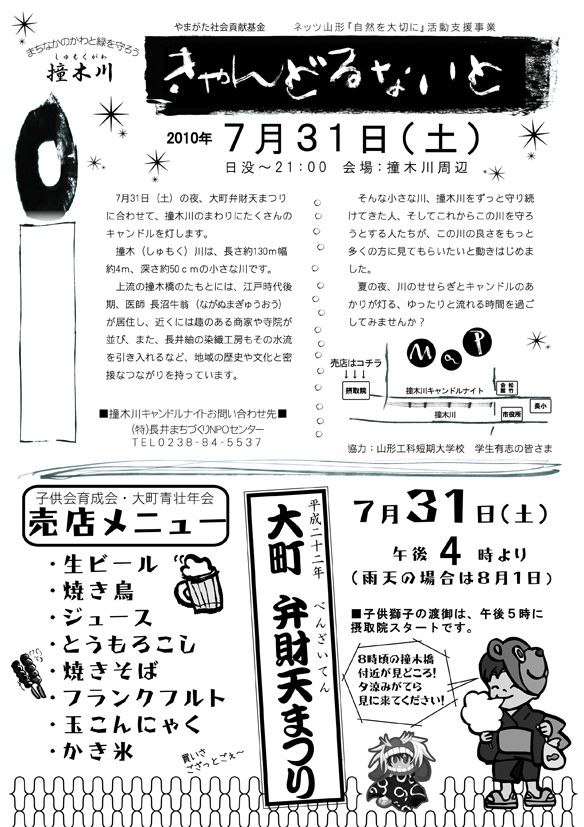 やまがた社会貢献基金　ネッツ山形『自然を大切に』活動支援事業
まちなかのかわと緑を守ろう
しゅもくがわ
撞木川
きゃんどるないと
2010年 7月31日(土)
日没～21:00　会場：撞木川周辺
7月31日（土）の夜、大町弁財天まつり
に合わせて、撞木川のまわりにたくさんの
キャンドルを灯します。
撞木（しゅもく）川は、長さ約130m幅
約4m、深さ約50cmの小さな川です。
上流の撞木橋のたもとには、江戸時代後
期、医師 長沼牛翁（ながぬまぎゅうおう）
が居住し、近くには趣のある商家や寺院が
並び、また、長井紬の染織工房もその水流
を引き入れるなど、地域の歴史や文化と密
接なつながりを持っています。
■撞木川キャンドルナイトお問い合わせ先■
(特)長井まちづくりNPOセンター
TEL0238-84-5537
そんな小さな川、撞木川をずっと守り続
けてきた人、そしてこれからこの川を守ろ
うとする人たちが、この川の良さをもっと
多くの方に見てもらいたいと動きはじめま
した。
夏の夜、川のせせらぎとキャンドルのあ
かりが灯る、ゆったりと流れる時間を過ご
してみませんか？
MaP
売店はコチラ
↓↓↓
摂取院
撞木川キャンドルナイト
撞木川
松竹会館
市役所
長小
協力：山形工科短期大学校　学生有志の皆さま
子供会育成会・大町青壮年会
売店メニュー
・生ビール
・焼き鳥
・ジュース
・とうもろこし
・焼きそば
・フランクフルト
・玉こんにゃく
・かき氷
買いさ
ござっとごぇ～
平成二十二年
べんざいてん
大町 弁財天まつり
7月31日(土)
午後 4 時より
(雨天の場合は8月1日)
■子供獅子の渡御は、午後５時に
摂取院スタートです。
8時頃の撞木橋
付近が見どころ!
夕涼みがてら
見に来てください!